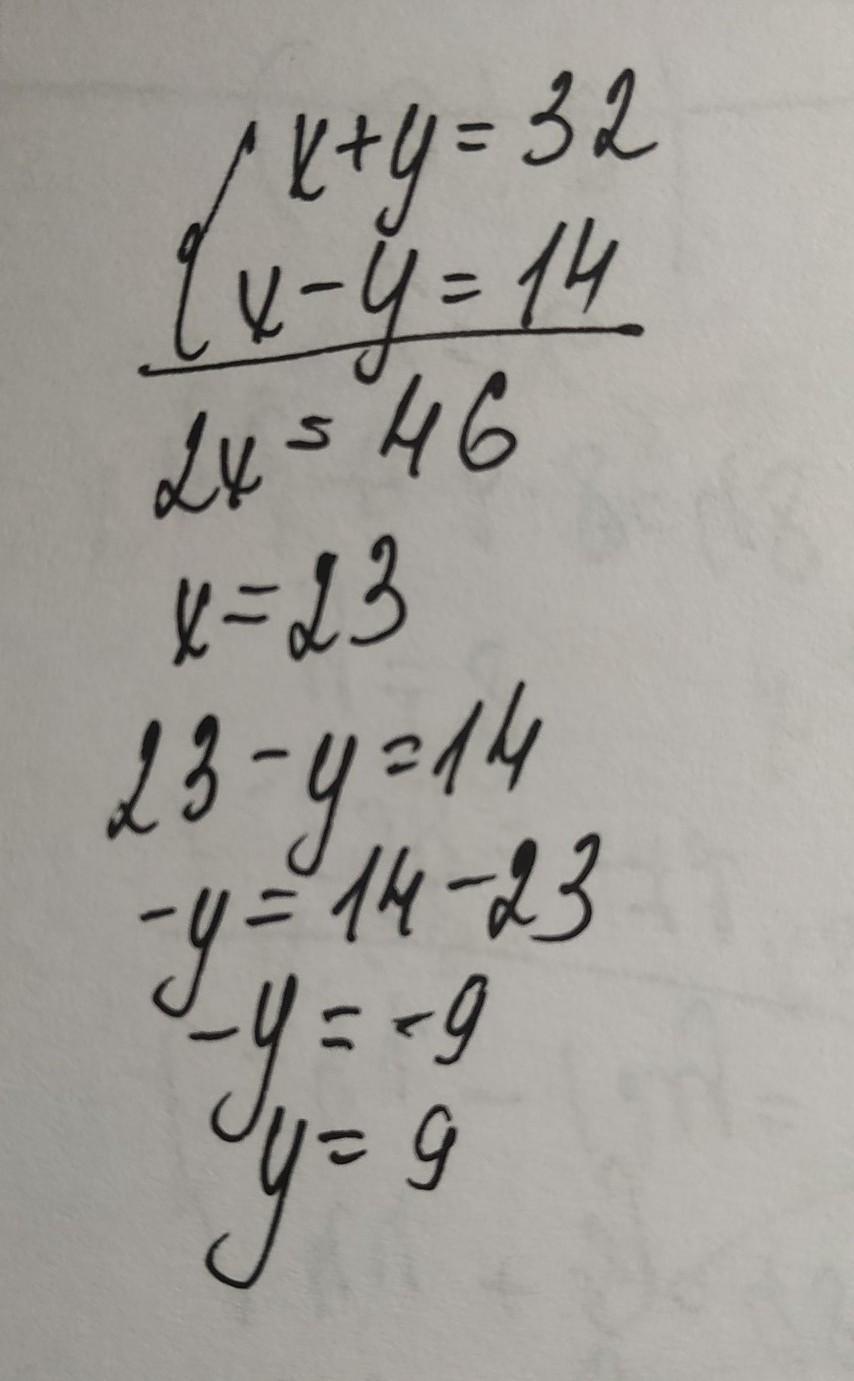 x+y=32
x-y=14
2x=46
x=23
23-y=14
-y=14-23
-y=-9
y=9